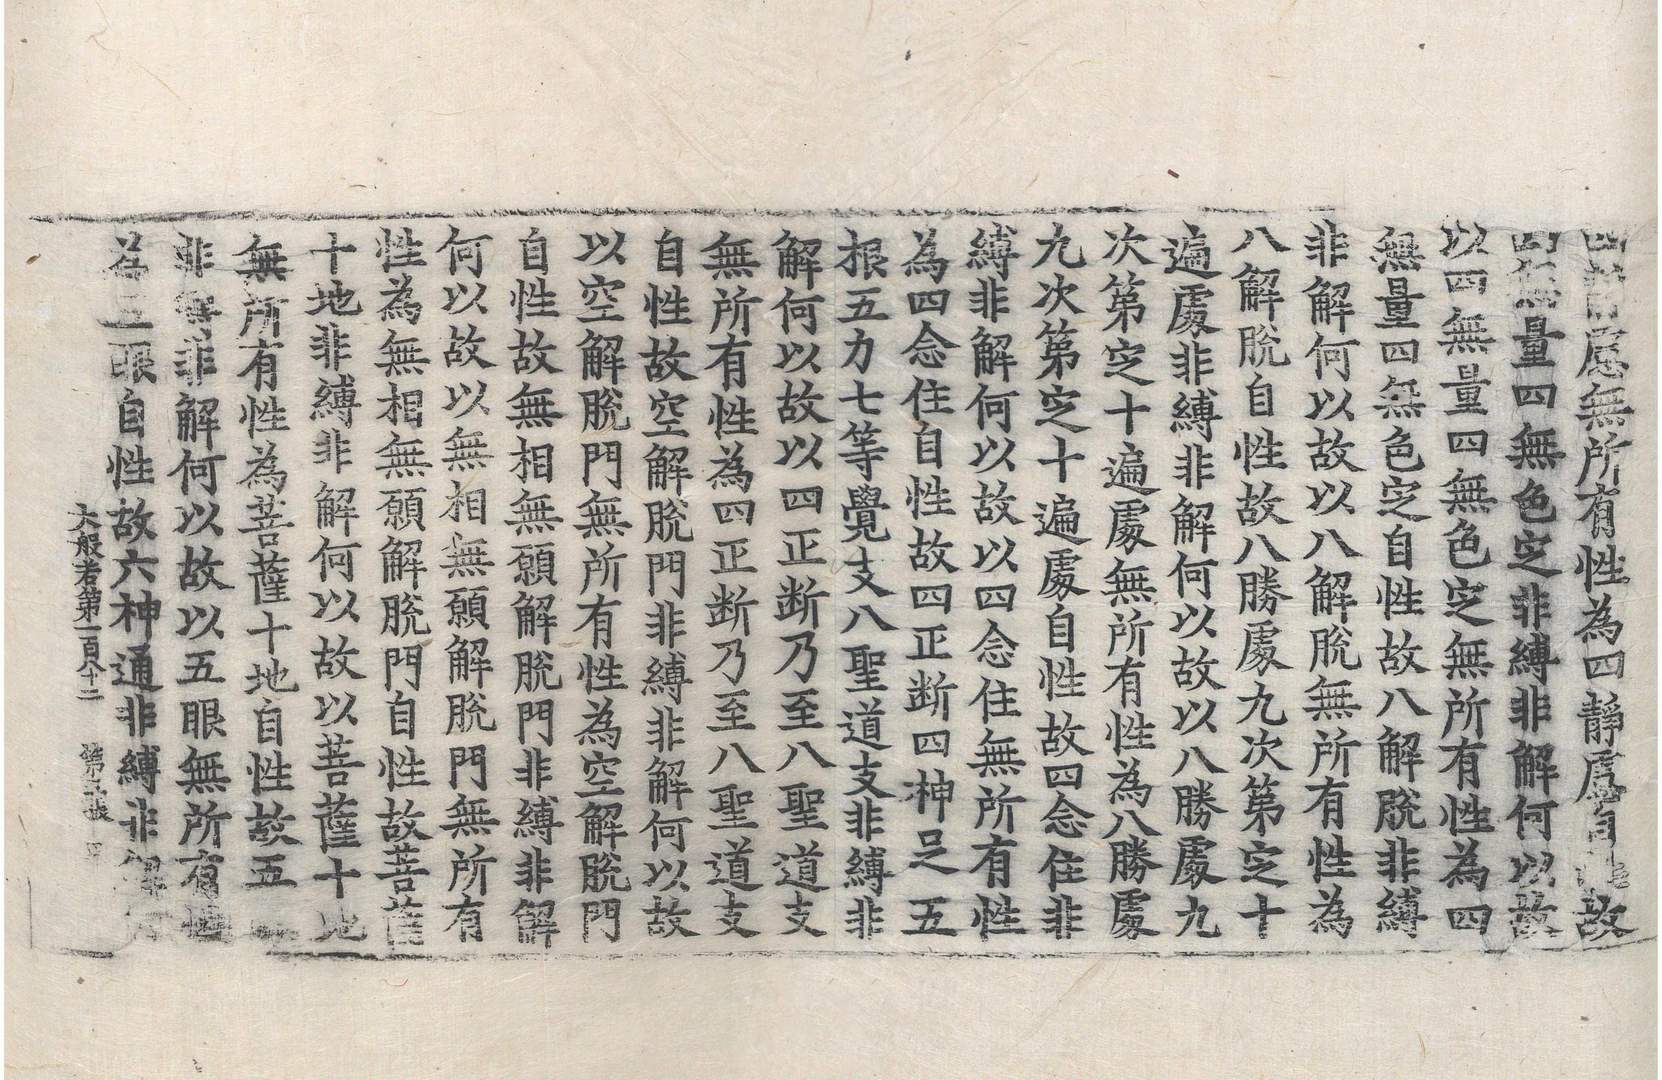 四靜慮無所有性為四靜慮自性故
四無量四無色定非縛非解何以故
以四無量四無色定無所有性為四
無量四無色定自性故八解脫非縛
非解何以故以八解脫無所有性為
八解脫自性故八勝處九次第定十
遍處非縛非解何以故以八勝處九
次第定十遍處無所有性為八勝處
九次第定十遍處自性故四念住非
縛非解何以故以四念住無所有性
為四念住自性故四正断四神足五
根五力七等覺支八聖道支非縛非
解何以故以四正断乃至八聖道支
無所有性為四正断乃至八聖道支
自性故空解脫門非縛非解何以故
以空解脫門無所有性為空解脫門
自性故無相無願解脫門非縛非解
何以故以無相無願解脫門無所有
性為無相無願解脫門自性故菩薩
十地非縛非解何以故以菩薩十地
無所有性為菩薩十地自性故五
非縛非解何以故以五眼無所有性
為五眼自性故六神通非縛非解何
大般若第一百八十二 第五張